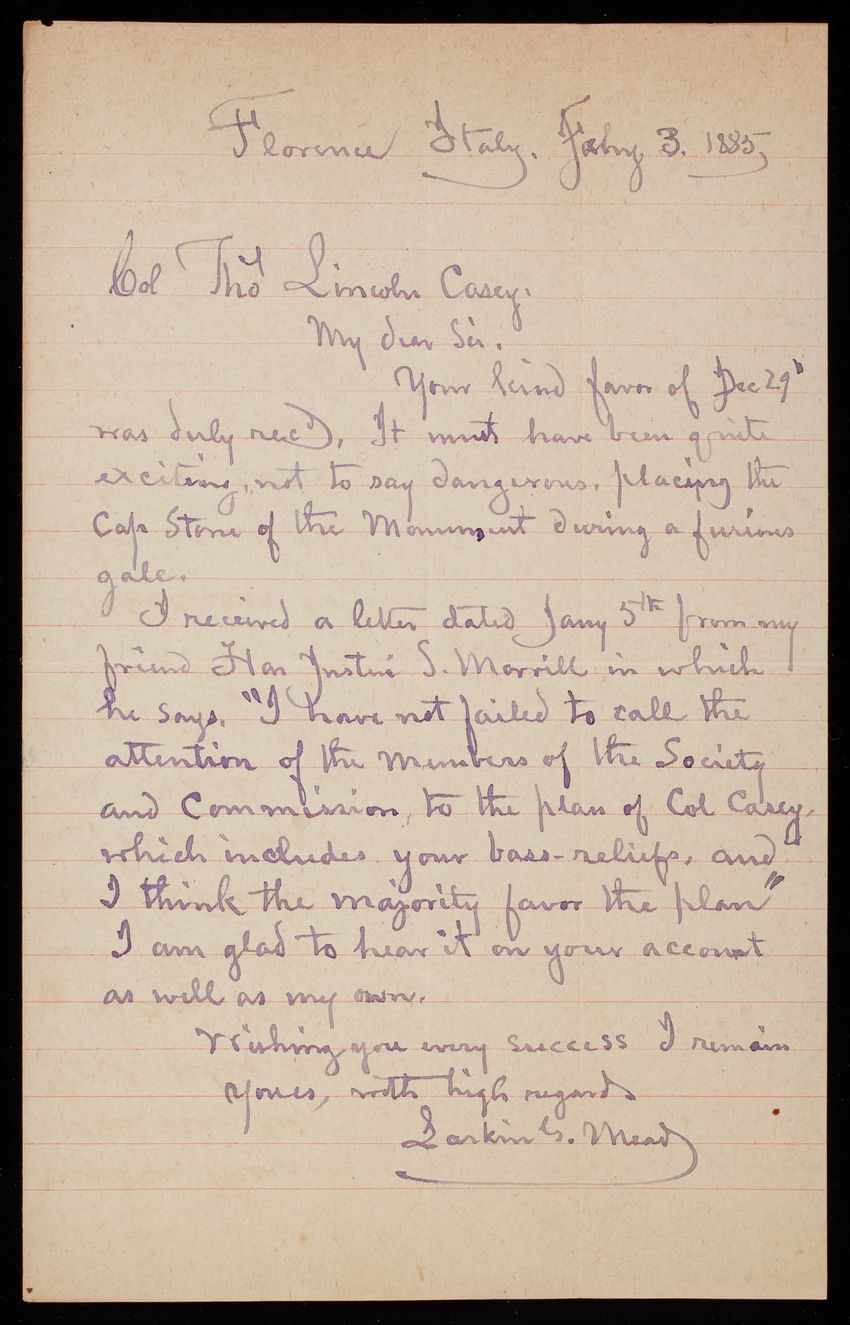 Florence Italy. Feby 3. 1885,
Col Thos Lincoln Casey.
My dear Sir.
Your kind favor of Dec 29"
was duly rec'd, It must have been quite
exciting, not to say dangerous, placing the
Cap Stone of the Monument during a furious
gale.
I received a letter dated Jany 5th from my
friend Hon Justin S. Morrill in which
he says, "I have not failed to call the
attention of the members of the Society
and Commission, to the plan of Col Casey,
which includes your bass-reliefs, and
I think the majority favor the plan"
I am glad to hear it on your account
as well as my own.
Wishing you every success I remain
yours, with high regards
Larkin G. Mead